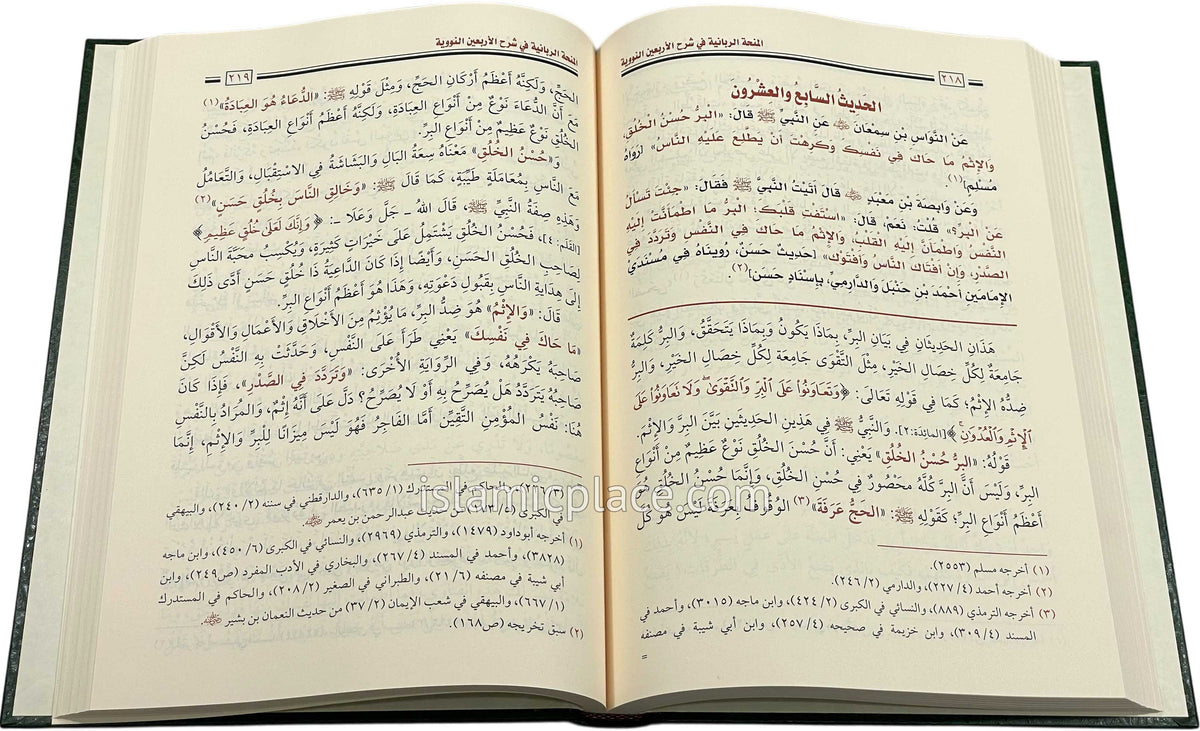 المنحة الربانية في شرح الأربعين النووية
٢١٨
الحَدِيثُ السَّابِعُ وَالعِشْرُونَ
عَنْ النَّوَّاسِ بنِ سِمْعَانَ ﵁ عَنِ النَّبِيِّ ﷺ قَالَ: «البِرُّ حُسْنُ الخُلُقِ،
وَالإِثْمُ مَا حَاكَ فِي نَفْسِكَ وَكَرِهْتَ أَنْ يَطَّلِعَ عَلَيْهِ النَّاسُ» [رَوَاهُ
مُسْلِم](١).
وَعَنْ وَابِصَةَ بْنِ مَعْبَدٍ ﵁ قَالَ أَتَيْتُ النَّبِيَّ ﷺ فَقَالَ: «جِئْتَ تَسْأَلُ
عَنْ الْبِرِّ؟» قُلْتُ: نَعَمْ، قَالَ: «اسْتَفْتِ قَلْبَكَ؛ البِرُّ مَا اطْمَأَنَّتْ إِلَيْهِ
النَّفْسُ وَاطْمَأَنَّ إِلَيْهِ القَلْبُ، وَالإِثْمُ مَا حَاكَ فِي النَّفْسِ وَتَرَدَّدَ فِي
الصَّدْرِ، وَإِنْ أَفْتَاكَ النَّاسُ وَأَفْتَوْكَ» [حَدِيثٌ حَسَنٌ، رَوَيْنَاهُ فِي مُسْنَدَيِّ
الإِمَامَيْنِ أَحْمَدَ بْنِ حَنْبَلَ وَالدَّارِمِيِّ، بِإِسْنَادٍ حَسَنٍ](٢).
هَذَانِ الحَدِيثَانِ فِي بَيَانِ البِرِّ، بِمَاذَا يَكُونُ وَبِمَاذَا يَتَحَقَّقُ، وَالبِرُّ كَلِمَةٌ
جَامِعَةٌ لِكُلِّ خِصَالِ الخَيْرِ، مِثْلَ التَّقْوَى جَامِعَة لِكُلِّ خِصَالِ الخَيْرِ، وَالبِرُّ
ضِدُّهُ الإِثْمُ؛ كَمَا فِي قَوْلِهِ تَعَالَى: ﴿وَتَعَاوَنُوا عَلَى الْبِرِّ وَالتَّقْوَىٰ ۖ وَلَا تَعَاوَنُوا عَلَى
الْإِثْمِ وَالْعُدْوَٰنِ ۚ﴾ [المائِدَة:٢]. وَالنَّبِيُّ ﷺ فِي هَذَيْنِ الحَدِيثَينِ بَيَّنَ البِرَّ وَالإِثْمَ.
قَوْلُهُ: «البِرُّ حُسْنُ الخُلُقِ» يَعْنِي: أَنَّ حُسْنَ الخُلُقِ نَوْعٌ عَظِيمٌ مِنْ أَنْوَاعِ
البِرِّ، وَلَيْسَ أَنَّ البِرَّ كُلَّهُ مَحْصُورٌ فِي حُسْنِ الخُلُقِ، وَإِنَّمَا حُسْنُ الخُلُقِ هُوَ
أَعْظَمُ أَنْوَاعِ البِرِّ؛ كَقَوْلِهِ ﷺ: «الحَجُّ عَرَفَةَ»(٣) الوُقُوفُ بِعَرَفَةَ لَيْسَ هُوَ كُلَّ
(١) أخرجه مسلم (٢٥٥٣).
(٢) أخرجه أحمد (٤/ ٢٢٧)، والدارمي (٢/ ٢٤٦).
(٣) أخرجه الترمذي (٨٨٩)، والنسائي في الكبرى (٢/ ٤٢٤)، وابن ماجه (٣٠١٥)، وأحمد في
المسند (٤/ ٣٠٩)، وابن خزيمة في صحيحه (٤/ ٢٥٧)، وابن أبي شيبة في مصنفه
=
المنحة الربانية في شرح الأربعين النووية
٢١٩
الحَجِّ، وَلَكِنَّهُ أَعْظَمُ أَرْكَانِ الحَجِّ، وَمِثْلَ قَوْلِهِ ﷺ: «الدُّعَاءُ هُوَ العِبَادَةُ»(١)
مَعَ أَنَّ الدُّعَاءَ نَوْعٌ مِنْ أَنْوَاعِ العِبَادَةِ، وَلَكِنَّهُ أَعْظَمُ أَنْوَاعِ العِبَادَةِ، فَحُسْنُ
الخُلُقِ نَوْعٌ عَظِيمٌ مِنْ أَنْوَاعِ البِرِّ.
وَ«حُسْنُ الخُلُقِ» مَعْنَاهُ سِعَةُ البَالِ وَالبَشَاشَةُ فِي الاسْتِقْبَالِ، وَالتَّعَامُلُ
مَعَ النَّاسِ بِمُعَامَلَةٍ طَيِّبَةٍ، كَمَا قَالَ ﷺ: «وَخَالِقِ النَّاسَ بِخُلُقٍ حَسَنٍ»(٢)
وَهَذِهِ صِفَةُ النَّبِيِّ ﷺ، قَالَ اللهُ ـ جَلَّ وَعَلَا ـ: ﴿وَإِنَّكَ لَعَلَىٰ خُلُقٍ عَظِيمٍ﴾
[القَلَم: ٤]، فَحُسْنُ الخُلُقِ يَشْتَمِلُ عَلَى خَيْرَاتٍ كَثِيرَةٍ، وَيُكْسِبُ مَحَبَّةَ النَّاسِ
لِصَاحِبِ الخُلُقِ الحَسَنِ، وَأَيْضًا إِذَا كَانَ الدَّاعِيَةُ ذَا خُلُقٍ حَسَنٍ أَدَّى ذَلِكَ
إِلَى هِدَايَةِ النَّاسِ بِقَبُولِ دَعْوَتِهِ، وَهَذَا هُوَ أَعْظَمُ أَنْوَاعِ البِرِّ.
قَالَ: «وَالإِثْمُ» هُوَ ضِدُّ البِرِّ، مَا يُؤْثِمُ مِنَ الأَخْلَاقِ وَالأَعْمَالِ وَالأَقْوَالِ،
«مَا حَاكَ فِي نَفْسِكَ» يَعْنِي طَرَأَ عَلَى النَّفْسِ، وَحَدَّثَتْ بِهِ النَّفْسُ لَكِنَّ
صَاحِبَهُ يَكْرَهُهُ، وَفِي الرِّوَايَةِ الأُخْرَى: «وَتَرَدَّدَ فِي الصَّدْرِ»، فَإِذَا كَانَ
صَاحِبُهُ يَتَرَدَّدُ هَلْ يُصَرِّحُ بِهِ أَوْ لَا يُصَرِّحُ؟ دَلَّ عَلَى أَنَّهُ إِثْمٌ، وَالمُرَادُ بِالنَّفْسِ
هُنَا: نَفْسُ المُؤْمِنِ التَّقِيِّنَ أَمَّا الفَاجِرُ فَهُوَ لَيْسَ مِيزَانًا لِلْبِرِّ وَالإِثْمِ، إِنَّمَا
والحاكم في المستدرك (١/ ٦٣٥)، والدارقطني في سننه (٢/ ٢٤٠)، والبيهقي
في الكبرى حديث عبدالرحمن بن يعمر ﵁.
(١) أخرجه أبوداود (١٤٧٩)، والترمذي (٢٩٦٩)، والنسائي في الكبرى (٦/ ٤٥٠)، وابن ماجه
(٣٨٢٨)، وأحمد في المسند (٤/ ٢٦٧)، والبخاري في الأدب المفرد (ص٢٤٩)، وابن
أبي شيبة في مصنفه (٦/ ٢١)، والطبراني في الصغير (٢/ ٢٠٨)، والحاكم في المستدرك
(١/ ٦٦٧)، والبيهقي في شعب الإيمان (٢/ ٣٧) من حديث النعمان بن بشير ﵁.
(٢) سبق تخريجه (ص١٦٨).
islamicplace.com